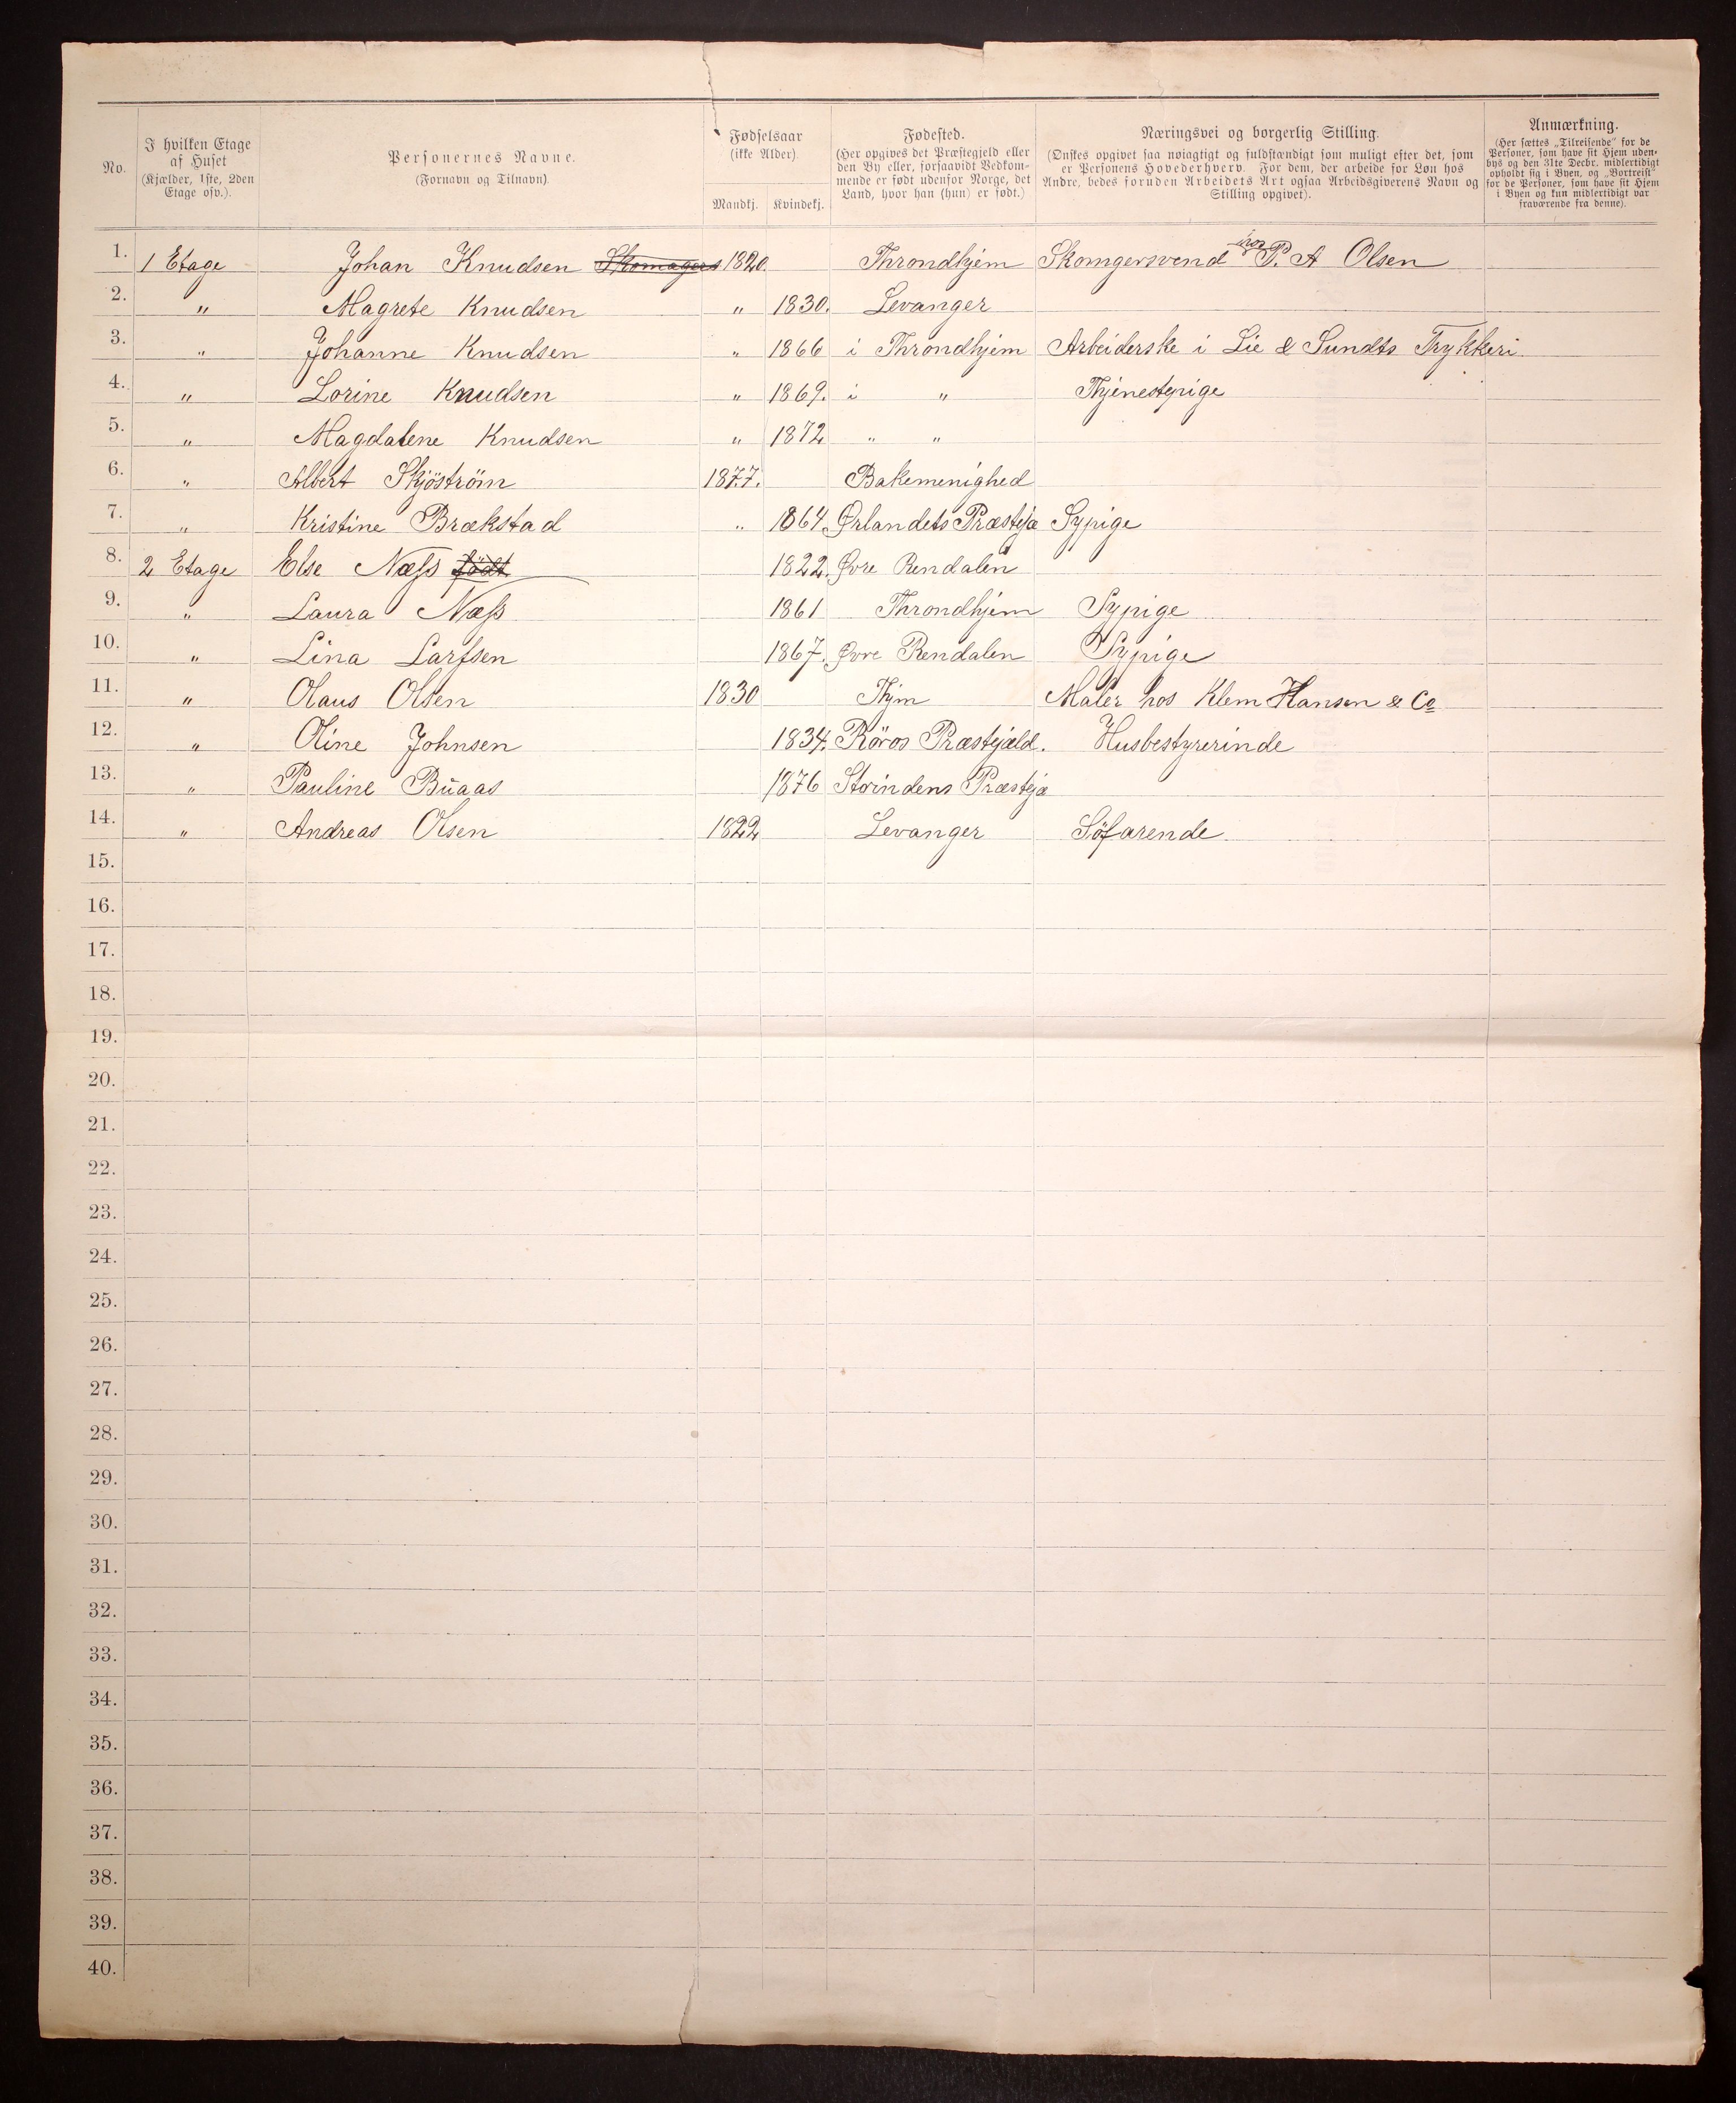 No.
I hvilken Etage
af Huset
(Kjælder, 1ste, 2den
Etage osv.).
Personernes Navne.
(Fornavn og Tilnavn)
Fødselsaar
(ikke Alder)
Mandkj. Kvindekj.
Fødested.
(Her opgives det Præstegjeld eller
den By eller, forsaavidt Vedkom-
mende er født udenfor Norge, det
Land, hvor han (hun) er født.)
Næringsvei og borgerlig Stilling.
(Ønskes opgivet saa nøiagtigt og fuldstændigt som muligt efter det, som
er Personens Hovederhverv. For dem, der arbeide for Løn hos
Andre, bedes foruden Arbeidets Art ogsaa Arbeidsgiverens Navn og
Stilling opgivet).
Anmærkning.
(Her sættes „Tilreisende" for de
Personer, som have sit Hjem uden-
bys og den 31te Decbr. midlertidigt
opholdt sig i Byen, og „Bortreist"
for de Personer, som have sit Hjem
i Byen og kun midlertidigt var
fraværende fra denne).
1. 1 Etage Johan Knudsen Skomagers 1820. Throndhjem Skomgersvend hos P. A Olsen
2. " Magrete Knudsen " 1830. Levanger
3. " Johanne Knudsen " 1866 i Throndhjem Arbeiderske i Lie & Sundts Trykkeri
4. " Lorine Knudsen " 1869. i " Thjenestepige
5. " Magdalene Knudsen " 1872 " "
6. " Albert Skjöström 1877. Bakemenighed
7. " Kristine Brækstad " 1864 Ørlandets Præstejæ Sypige
8. 2 Etage Else Næss født 1822. Øvre Rendalen
9. " Laura Næss 1861 Throndhjem Sypige
10. " Lina Larssen 1867. Øvre Rendalen Sypige
11. " Olaus Olsen 1830 Thjm Maler hos Klem Hansen & Co
12. " Oline Johnsen 1834. Röros Præstejæld. Husbestyrerinde
13. " Pauline Buaas 1876 Storindens Præstejæ
14. " Andreas Olsen 1822 Levanger Söfarende
15.
16.
17.
18.
19.
20.
21.
22.
23.
24.
25.
26.
27.
28.
29.
30.
31.
32.
33.
34.
35.
36.
37.
38.
39.
40.